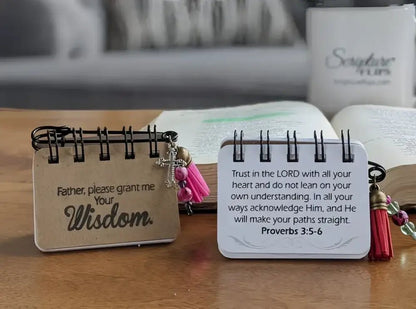 Scripture
FLIPS
Father, please grant me
Your
Wisdom.
Trust in the LORD with all your
heart and do not lean on your
own understanding. In all your
ways acknowledge Him, and He
will make your paths straight.
Proverbs 3:5-6